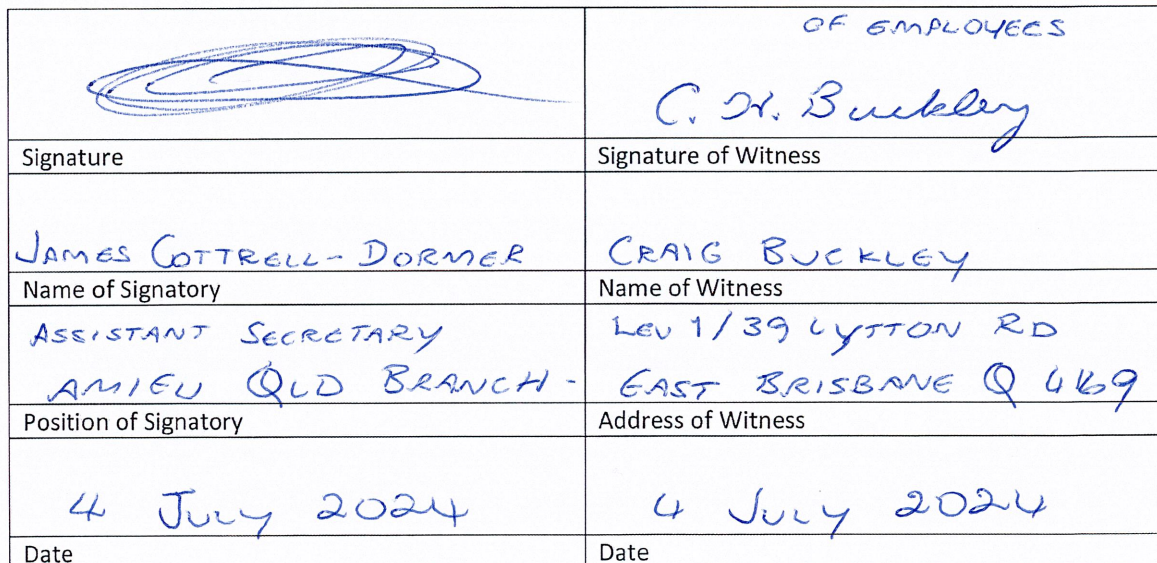 OF EMPLOYEES
C. W. Buckley
Signature
Signature of Witness
JAMES COTTRELL-DORMER
CRAIG BUCKLEY
Name of Signatory
Name of Witness
ASSISTANT SECRETARY
LEV 1/39 LYTTON RD
AMIEU QLD BRANCH -
EAST BRISBANE Q 4169
Position of Signatory
Address of Witness
4 JULY 2024
4 JULY 2024
Date
Date